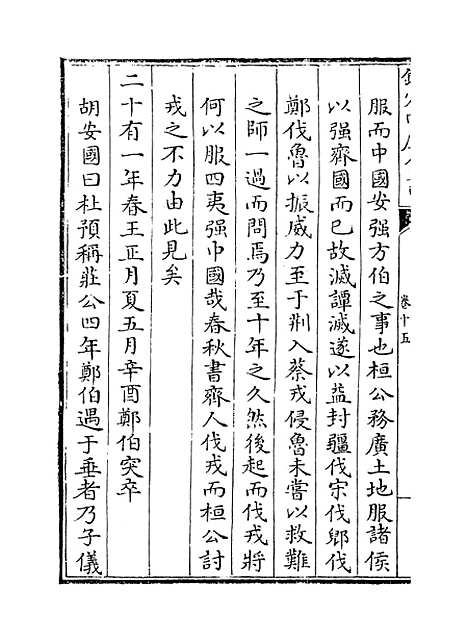 卷十五
服而中國安强方伯之事也桓公務廣土地服諸侯
以强齊國而已故滅譚滅遂以益封疆伐宋伐郳伐
鄭伐魯以振威力至于荆入蔡戎侵魯未嘗以救難
之師一過而問焉乃至十年之久然後起而伐戎將
何以服四夷强中國哉春秋書齊人伐戎而桓公討
戎之不力由此見矣
二十有一年春王正月夏五月辛酉鄭伯突卒
胡安國曰杜預稱莊公四年鄭伯遇于垂者乃子儀